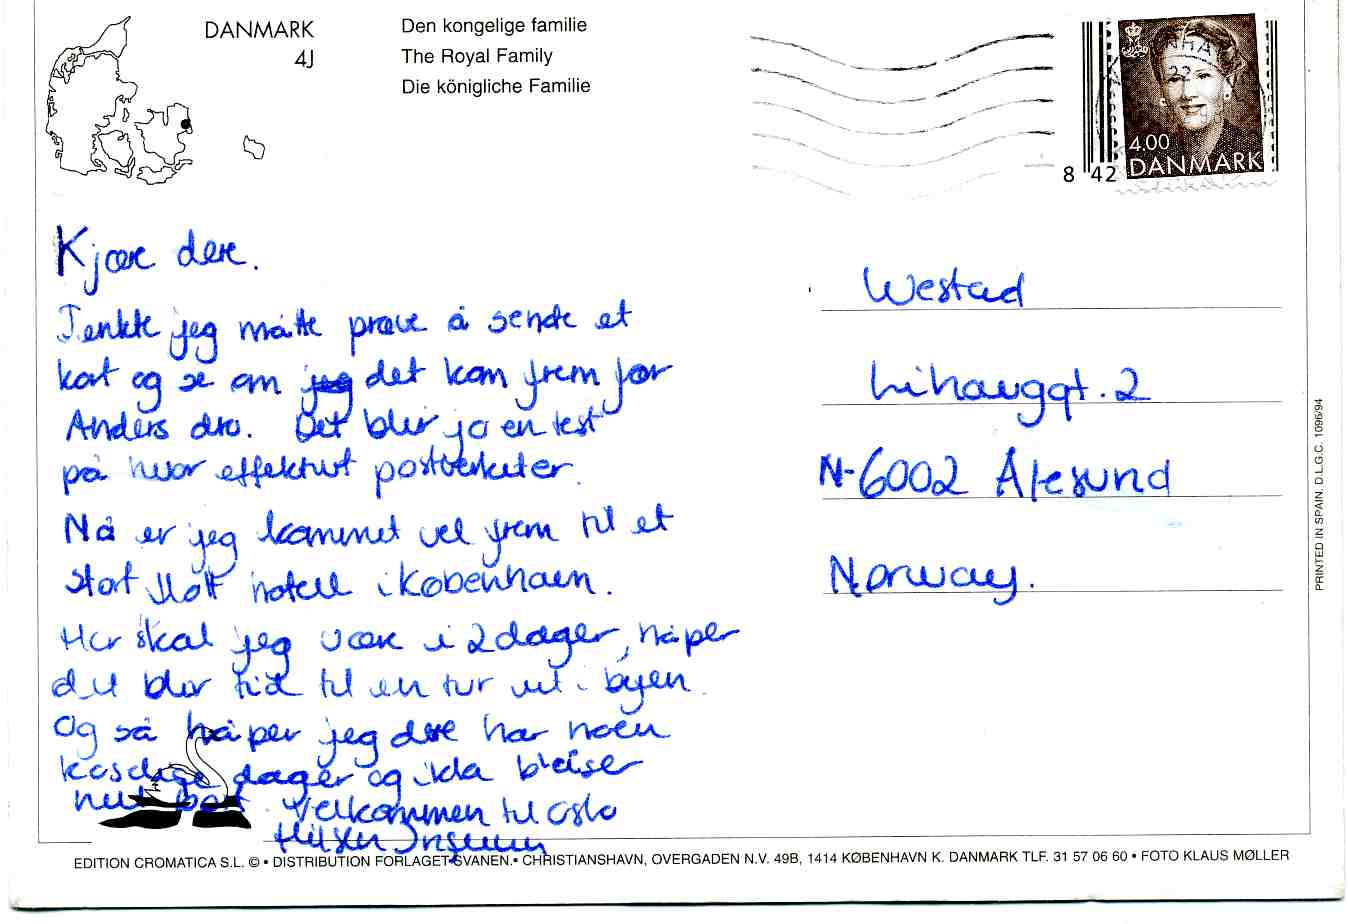 DANMARK
4J
Den kongelige familie
The Royal Family
Die königliche Familie
22
4.00
DANMARK
8 42
Kjære dere.
Tenkte jeg måtte prøve å sende et
kort og se om jeg det kom frem før
Anders dro. Det blir jo en test
på hvor effektivt postverket er.
Nå er jeg kommet vel frem til et
stort flott hotell i København.
Her skal jeg være i 2 dager, håper
det blir tid til en tur ut i byen.
Og så håper jeg dere har noen
koselige dager og ikke blåser
helt bort. Velkommen til Oslo
Hilsen
Westad
Lihauggt. 2
N-6002 Ålesund
Norway.
PRINTED IN SPAIN. D.L.G.C. 1096/94
EDITION CROMATICA S.L. © • DISTRIBUTION FORLAGET SVANEN. • CHRISTIANSHAVN, OVERGADEN N.V. 49B, 1414 KØBENHAVN K. DANMARK TLF. 31 57 06 60 • FOTO KLAUS MØLLER